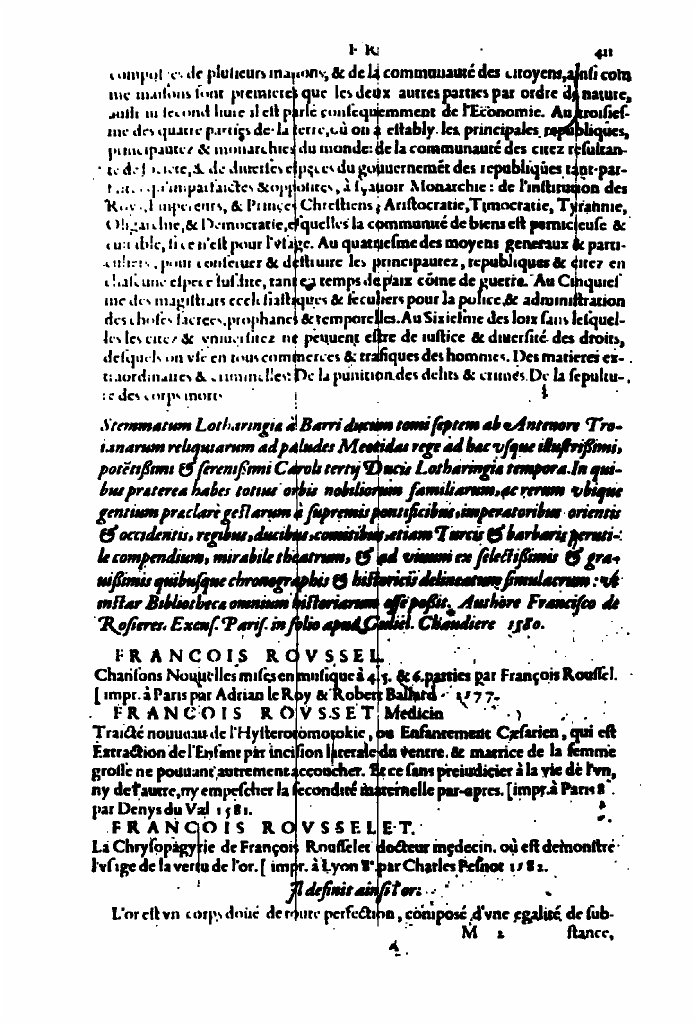 FR. 411
composées de plusieurs maisons, & de la communauté des citoyens, ainsi com
me maisons sont premieres que les deux autres parties par ordre de nature,
aussi au second liure il est parlé consequemment de l'Economie. Au troisies-
me des quatre parties de la terre, où on a estably les principales republiques,
principautez & monarchies du monde: de la communauté des citez resultan-
te de societé, & de diuerses especes du gouuernemét des republiques tant par-
qu'imparfaictes & opposites, à sçauoir Monarchie: de l'institution des
Roys, Empereurs, & Princes Chrestiens, Aristocratie, Timocratie, Tyrannie,
Oligarchie, & Democratie, esquelles la communité de biens est pernicieuse &
nuisible, si ce n'est pour l'vsage. Au quatriesme des moyens generaux & parti-
culiers, pour conseruer & destruire les principautez, republiques & citez en
chascune espece susdite, tant en temps de paix cóme de guerre. Au Cinquies
me des magistrats ecclesiastiques & seculiers pour la police, & administration
des choses sacrees, prophanes & temporelles. Au Sixiesme des loix sans lesquel-
les les citez & vniuersitez ne peuuent estre de iustice & diuersité des droits,
desquels on vse en tous commerces & trafiques des hommes. Des matieres ex-
traordinaires & criminelles: De la punition des delits & crimes. De la sepultu-
re des corps morts
Stemmatum Lotharingia à Barri ducum tomi septem ab Antenore Tro-
ianarum reliquiarum ad paludes Meotidas rege ad hac vsque illustrissimi,
potétissimi & serenissimi Caroli tertij Ducis Lotharingia tempora. In qui-
bus praterea habes totius orbis nobiliorum familiarum, ac rerum vbique
gentium praclarè gestarum à supremis pontificibus, imperatoribus orientis
& occidentis, regibus, ducibus, comitibus, etiam Turcis & barbaris peruti-
le compendium, mirabile theatrum, & ad viuum ex selectissimis & gra-
uissimis quibusque chronographis & historicis delineatum simulacrum: vt
instar Bibliotheca omnium historiarum esse possit. Authore Francisco de
Rosieres. Excus. Paris. in folio apud Guliel. Chaudiere 1580.
FRANCOIS ROVSSEL.
Chansons Nouuelles mises en musique à 4. 5. & 6. parties par François Roussel.
[impr. à Paris par Adrian le Roy & Robert Ballard 1577.
FRANCOIS ROVSSET Medicin
Traicté nouueau de l'Hysterotomotokie, ou Enfantement Cæsarien, qui est
Extraction de l'Enfant par incision laterale du ventre, & matrice de la femme
grosse ne pouuant autrement accoucher. Et ce sans preiudicier à la vie de l'vn,
ny de l'autre, ny empescher la fecondité maternelle par-apres. [impr. à Paris 8.
par Denys du Val 1581.
FRANCOIS ROVSSELET.
La Chrysopagyrie de François Rousselet docteur medecin. où est demonstré
l'vsage de la vertu de l'or. [impr. à Lyon 8. par Charles Pesnot 1582.
Il definit ainsi l'or.
L'or est vn corps doüé de toute perfection, cómposé d'vne egalité de sub-
M 2 stance,